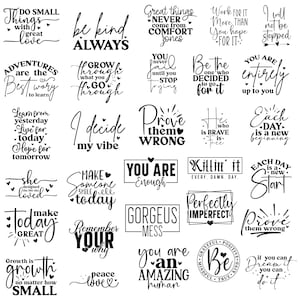 DO SMALL
Things with
great
love
be kind
ALWAYS
Great things
NEVER
come from
COMFORT
zones
WORK FOR IT
MORE THAN
YOU hope
FOR IT
I will
not be
stopped
ADVENTURES
are the
Best way
to learn
GROW
through
what you
GO
through
YOU
never
FAIL
until you
STOP
trying
Be the
one WHO
DECIDED
to go
for it
YOU ARE
entirely
up to you
Learn from
yesterday
Live for
today
Hope for
tomorrow
I decide
my vibe
Prove
them
WRONG
He
who
is BRAVE is
free
Each
DAY is a
new
beginning
she
make
today
GREAT
MAKE
Someone
smile
today
YOU ARE
Enough
Killin' it
EVERY DAMN DAY
EACH DAY
is a new
Start
Remember
YOUR
why
GORGEUS
MESS
Perfectly
IMPERFECT
Prove
them
WRONG
Growth is
growth
no matter
how
SMALL
peace
love
you are
an
AMAZING
human
Be
If you can
dream it
you can
do it